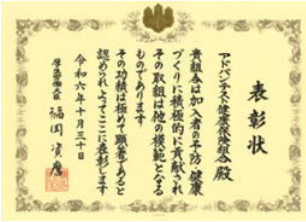 表彰状
アドバンテスト健康保険組合殿
貴組合は加入者の予防・健康
づくりに積極的に貢献され
その取組は他の模範となる
ものであります
その功績は極めて顕著であると
認められよってここに表彰します
令和六年十月三十日
厚生労働大臣 福岡資麿